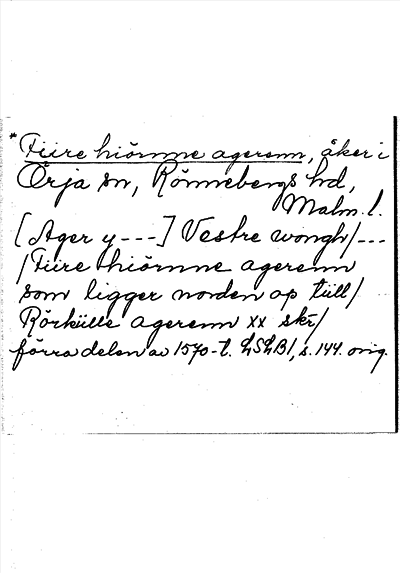 *Fiire hiörnne agerenn, åker i
Örja sn, Rönnebergs hd,
Malm. l.
[Ager y ---] Vestre wongh/---
/Fiire hiörnne agerenn
som ligger norden op tiill/
Rörkiille agerenn xx skr/
förra delen av 1570-t. LSLB1, s. 144. orig.